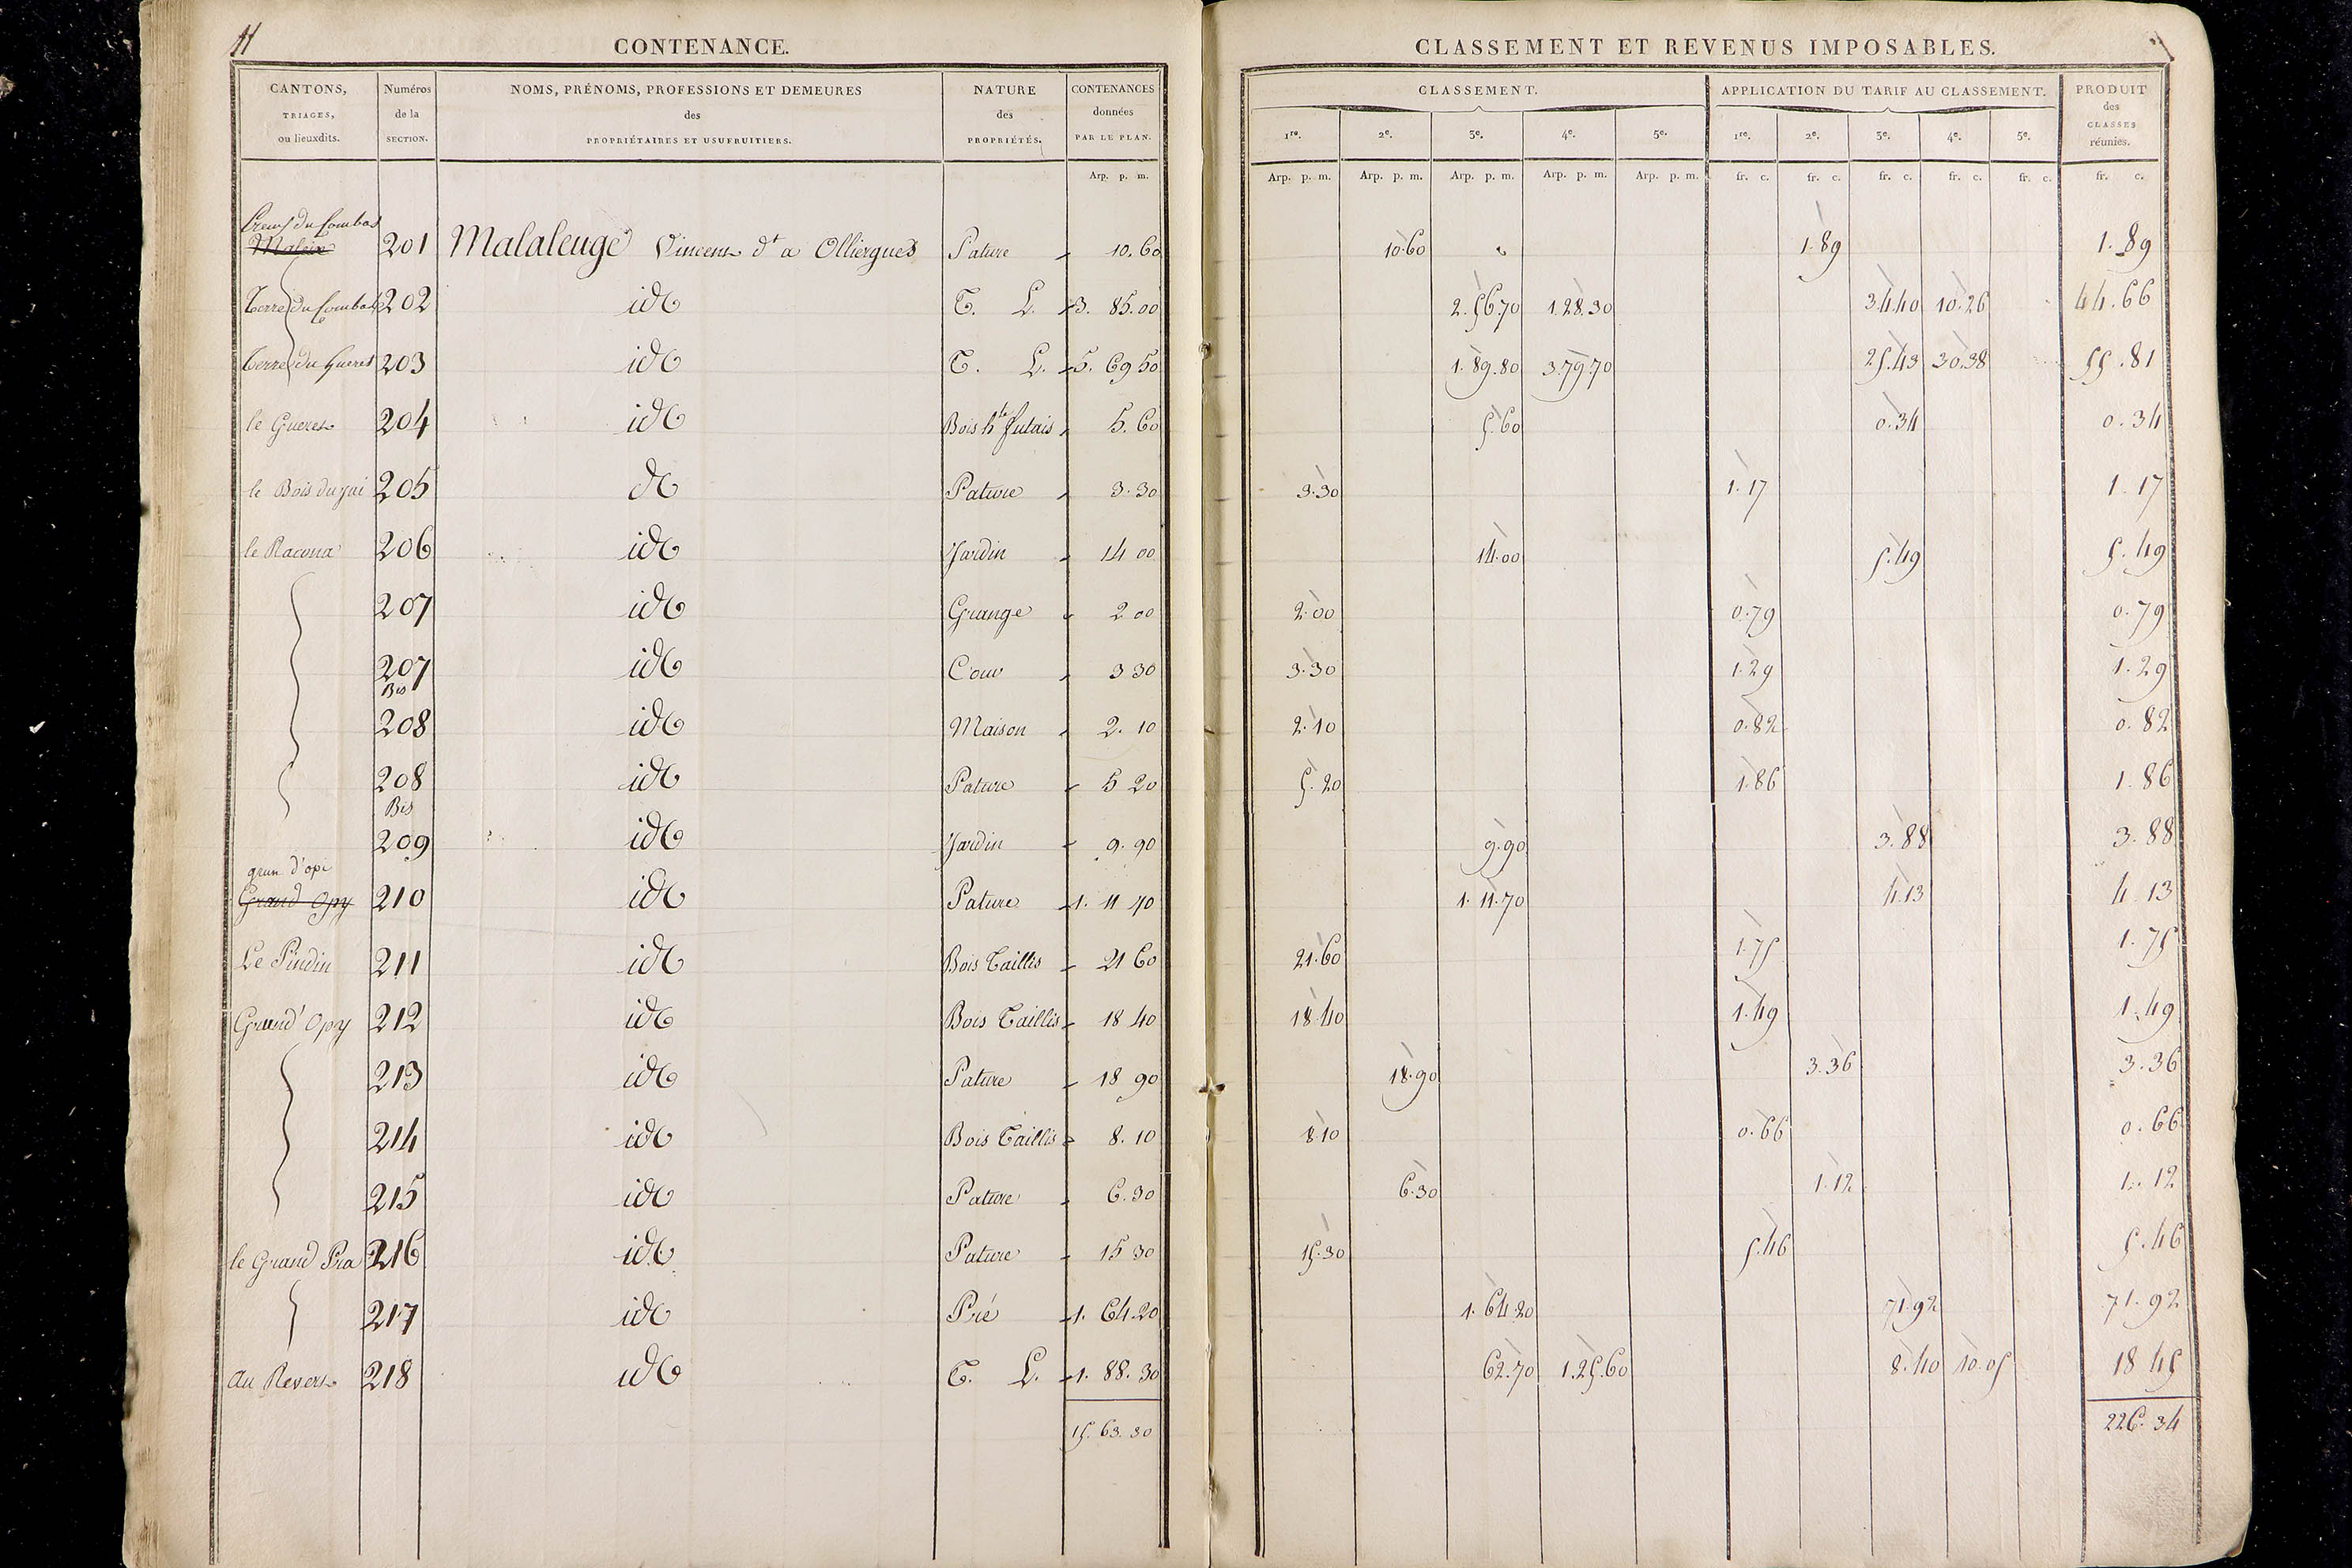 11
CONTENANCE.
CANTONS, TRIAGES, ou lieuxdits. | Numéros de la SECTION. | NOMS, PRÉNOMS, PROFESSIONS ET DEMEURES des PROPRIÉTAIRES ET USUFRUITIERS. | NATURE des PROPRIÉTÉS. | CONTENANCES données PAR LE PLAN.
Arp. p. m.
du Combat
Malein 201 Malaleuge Vincent dt a Olliergues Pature 10.60
Terre du Combat 202 id T. L. 3. 85.00
Terre du Gueret 203 id T. L. 5. 69 50
le Gueret 204 id Bois hte futais 5. 60
le Bois du 205 d Pature 3.30
le Racona 206 id Jardin 14 00
207 id Grange 2 00
207 Bis id Cour 3 30
208 id Maison 2. 10
208 Bis id Pature 5 20
209 id Jardin 9. 90
grun d'opi
Grand Opy 210 id Pature 1. 11 70
Le Pindin 211 id Bois Taillis 21 60
Grand' Opy 212 id Bois Taillis 18 40
213 id Pature 18 90
214 id Bois Taillis 8. 10
215 id Pature 6.30
le Grand Pra 216 id Pature 15 30
217 id Pré 1. 64.20
au Revers 218 id T. L. 1. 88. 30
15. 63. 30
CLASSEMENT ET REVENUS IMPOSABLES.
CLASSEMENT. | APPLICATION DU TARIF AU CLASSEMENT. | PRODUIT des CLASSES réunies.
1re. 2e. 3e. 4e. 5e. 1re. 2e. 3e. 4e. 5e.
Arp. p. m. Arp. p. m. Arp. p. m. Arp. p. m. Arp. p. m. fr. c. fr. c. fr. c. fr. c. fr. c. fr. c.
10.60 1.89 1.89
2.56.70 1.28.30 34.40 10.26 44.66
1.89.80 3.79.70 25.43 30.38 55.81
5.60 0.34 0.34
3.30 1.17 1.17
14.00 5.49 5.49
2.00 0.79 0.79
3.30 1.29 1.29
2.10 0.82 0.82
5.20 1.86 1.86
9.90 3.88 3.88
1.11.70 4.13 4.13
21.60 1.75 1.75
18.40 1.49 1.49
18.90 3.36 3.36
8.10 0.66 0.66
6.30 1.12 1.12
15.30 5.46 5.46
1.64.20 71.92 71.92
62.70 1.25.60 8.40 10.05 18 45
226.34